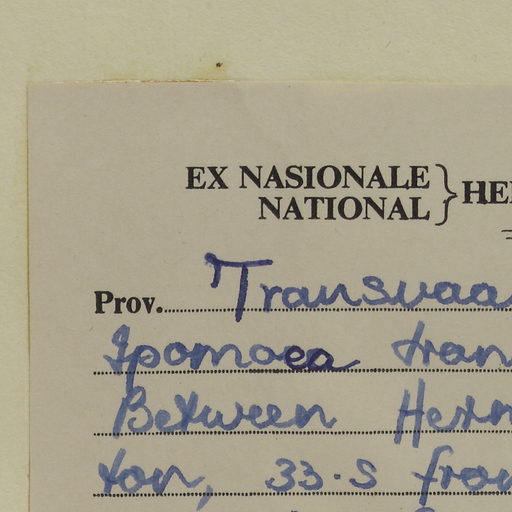 EX NASIONALE
NATIONAL } HE
Prov. Transvaa
Ipomoea tran
Between Herm
ton, 33.S from